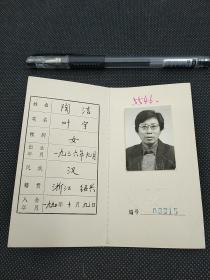 姓名 陶洁
笔名 叶宇
性别 女
出生年月 一九三六年九月
民族 汉
籍贯 浙江 绍兴
入会年月 一九九〇年十月九日
5506
编号 00215